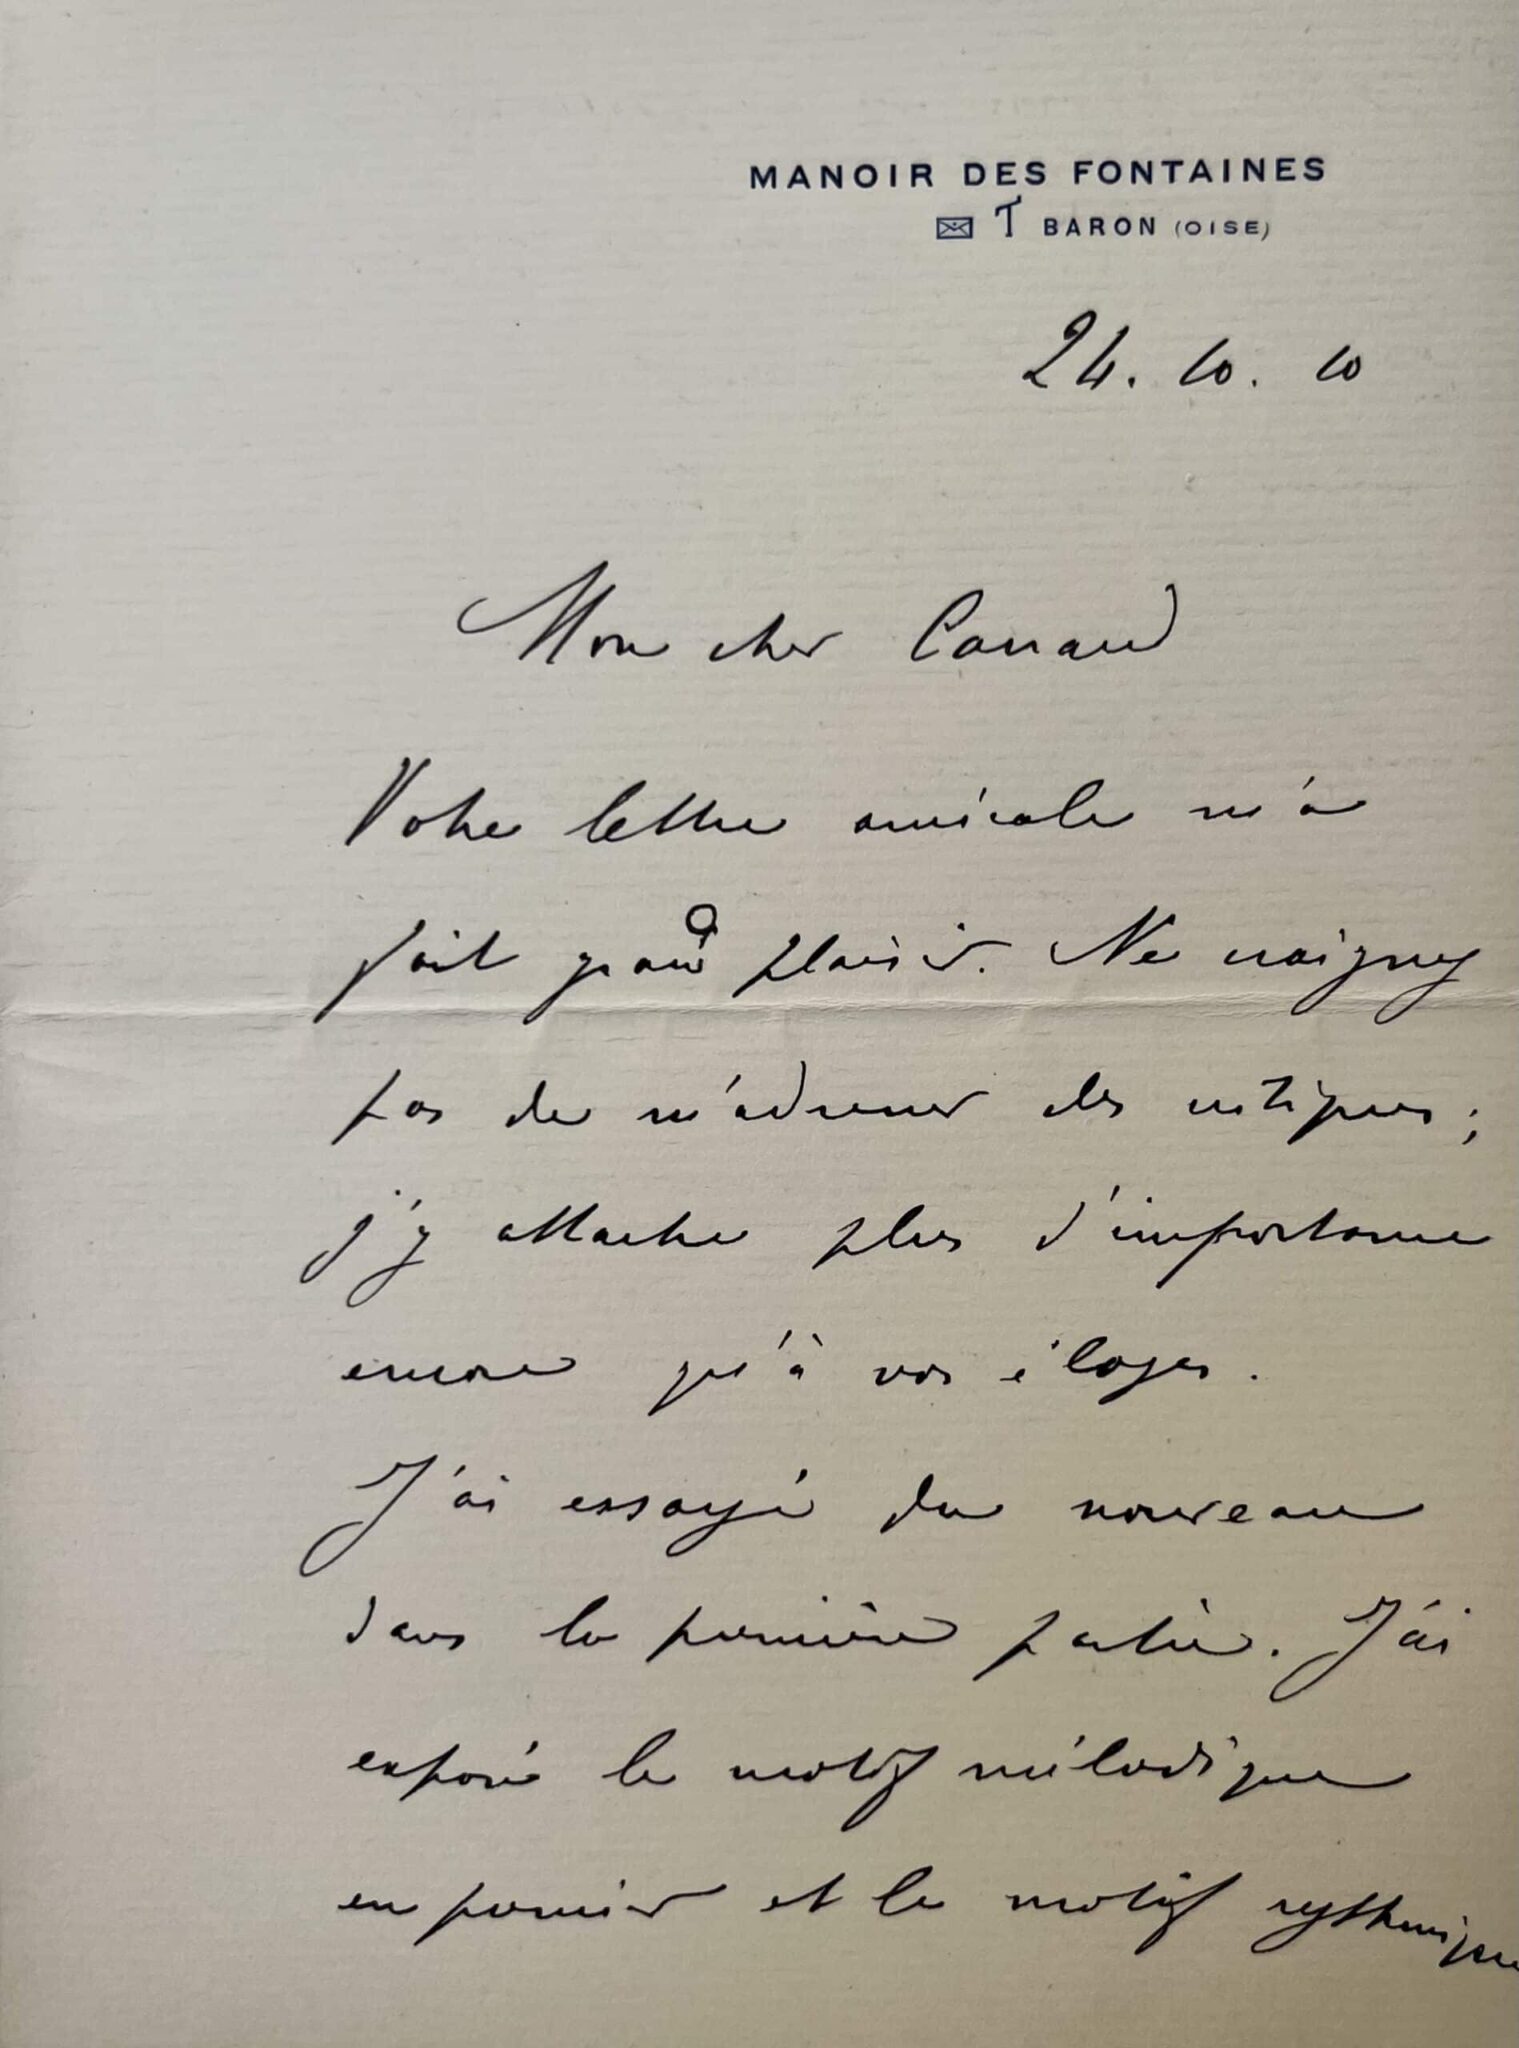 MANOIR DES FONTAINES
T BARON (OISE)
24. 10. 10
Mon cher Carraud
Votre lettre amicale m'a
fait grand plaisir. Ne craignez
pas de m'adresser des critiques ;
j'y attache plus d'importance
encore qu'à vos éloges.
J'ai essayé du nouveau
dans la première partie. J'ai
exposé le motif mélodique
en premier et le motif rythmique